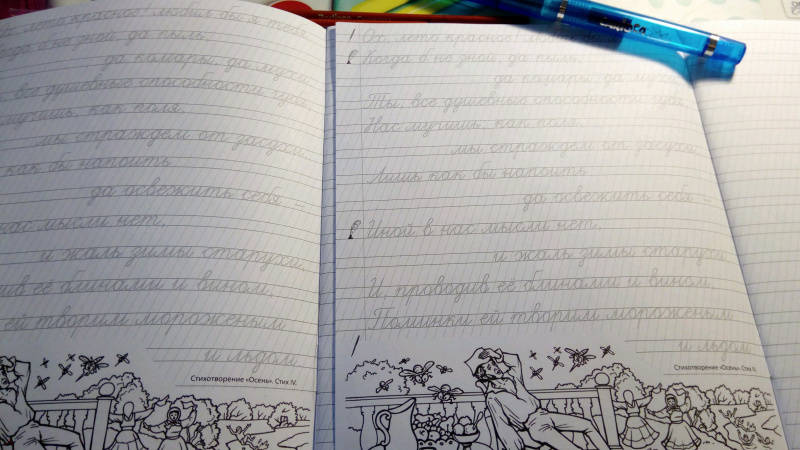 лето красное! любил бы я тебя,
огда б не зной, да пыль,
да комары, да мухи.
все душевные способности губя,
мучишь; как поля,
мы страждем от засухи;
как бы напоить
да освежить себя —
нас мысли нет,
и жаль зимы старухи,
ив её блинами и вином,
ей творим мороженым
и льдом.
Стихотворение «Осень». Стих IV.
Ох, лето красное! любил
Когда б не зной, да пыль,
да комары, да мухи.
Ты, все душевные способности губя,
Нас мучишь; как поля,
мы страждем от засухи;
Лишь как бы напоить
да освежить себя —
Иной в нас мысли нет,
и жаль зимы старухи,
И, проводив её блинами и вином,
Поминки ей творим мороженым
и льдом.
Стихотворение «Осень». Стих IV.